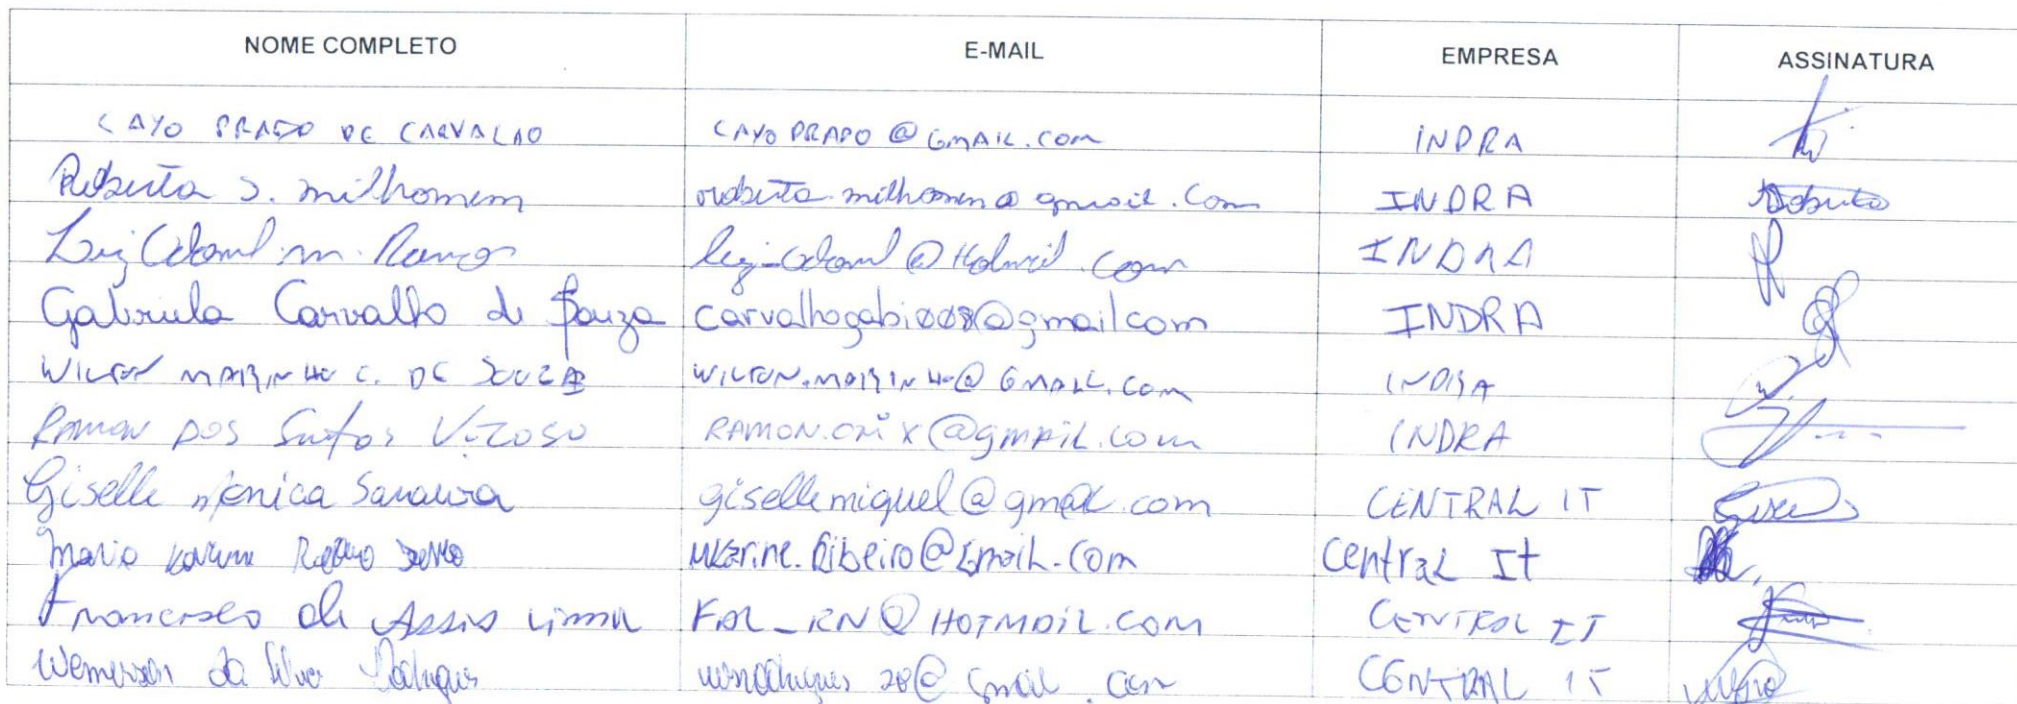 NOME COMPLETO E-MAIL EMPRESA ASSINATURA
CAYO PRADO DE CARVALHO CAYOPRADO@GMAIL.COM INDRA
Roberta S. milhomem roberta.milhomem@gmail.com INDRA Roberta
m. Ramos INDRA
Gabriela Carvalho de Souza carvalhogabi008@gmail.com INDRA
WILTON MARINHO C. DE SOUZA WILTON.MARINHO@GMAIL.COM INDRA
RAMON DOS Santos VIZOSO INDRA
Giselle Mônica Saraiva gisellemiguel@gmail.com CENTRAL IT
Maria Karine Ribeiro mkarine.Ribeiro@Gmail.com Central It
Francisco de Assis Lima FAL_RN@HOTMAIL.COM CENTRAL IT
Wemerson da Silva Rodrigues CENTRAL IT